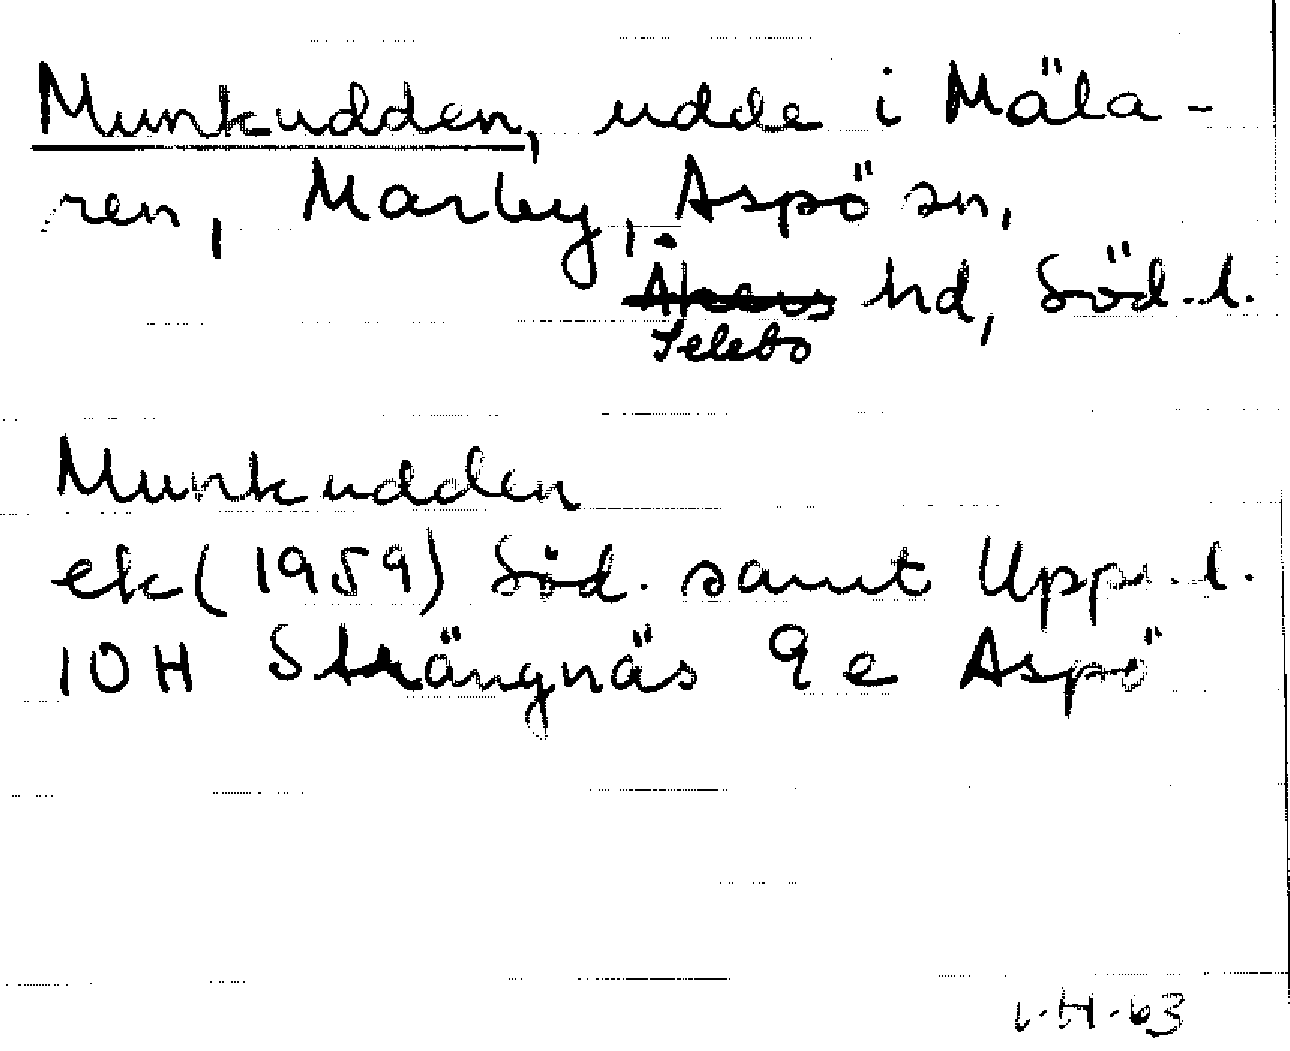 Munkudden, udde i Mäla-
ren, Marby, Aspö sn,
Åkers hd, Söd.l.
Selebo
Munkudden
ek (1959) Söd. samt Uppl.
10H Strängnäs 9e Aspö
I.H.63